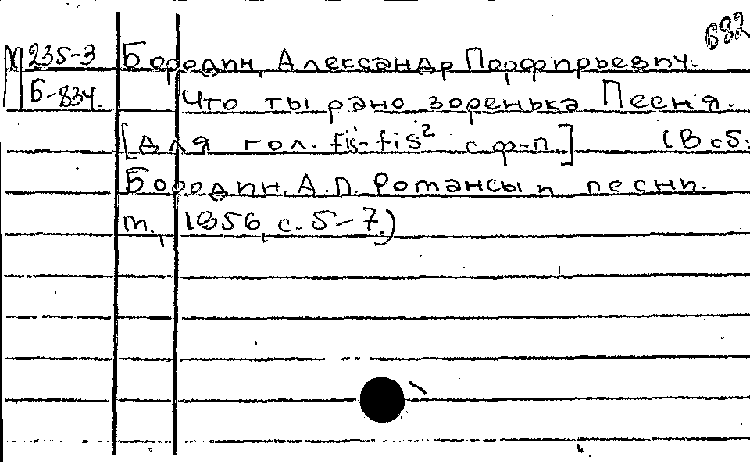 682
М 235-3 Бородин, Александр Порфирьевич.
Б-834. Что ты рано зоренька Песня.
[Для гол. fis-fis² с ф-п.] (В сб:
Бородин, А.П. Романсы и песни.
м., 1956, с. 5-7.)